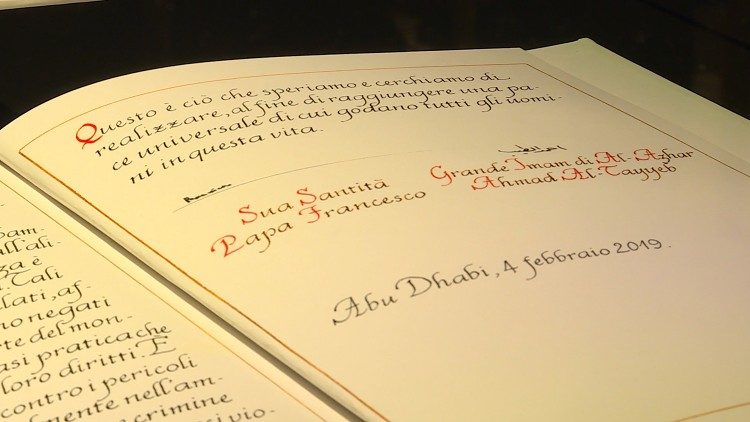 Questo è ciò che speriamo e cerchiamo di
realizzare, al fine di raggiungere una pa-
ce universale di cui godano tutti gli uomi-
ni in questa vita.
Sua Santità
Papa Francesco
Grande Imam di Al-Azhar
Ahmad Al-Tayyeb
Abu Dhabi, 4 febbraio 2019.
è
Tali
lati, af-
negati
del mon-
pratica che
loro diritti. E
contro i pericoli
nell'am-
crimine
vio-